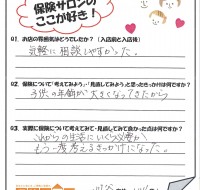 保険サロンの
ここが好き!
Q1. お店の雰囲気はどうでしたか?(入店前と入店後)
気軽に相談しやすかった。
Q2. 保険について「考えてみよう」・「見直してみよう」と思ったきっかけは何ですか?
子供の年齢が大きくなってきたから
Q3. 実際に保険について考えてみて・見直してみて良かった点は何ですか?
これからの生活にいくら必要か
もう一度考えるきっかけになった。